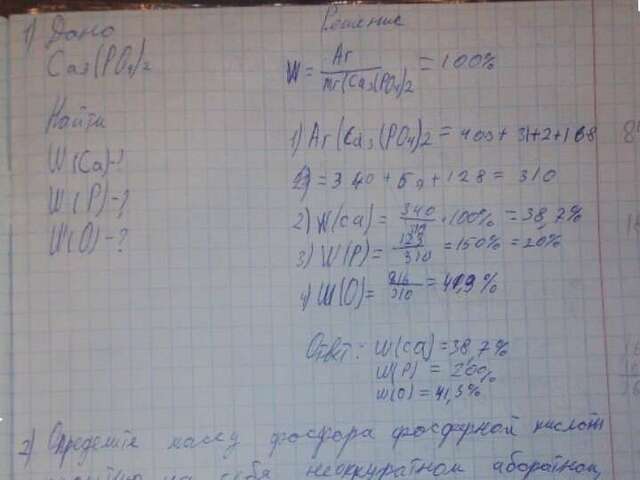 1) Дано
Ca3(PO4)2
Найти
W(Ca)-?
W(P)-?
W(O)-?
Решение
W = Ar / Mr(Ca3(PO4)2 = 100%
1) Ar(Ca3(PO4)2 = 403 + 31+2+168
= 340 + 62 + 128 = 310
2) W(Ca) = 340/310 · 100% = 38,7%
3) W(P) = 123/310 = 150% = 20%
4) W(O) = 216/310 = 41,9%
Ответ: W(Ca) = 38,7%
W(P) = 20%
W(O) = 41,3%
2) Определите массу фосфора фосфорной кислоты
на себя неаккуратном